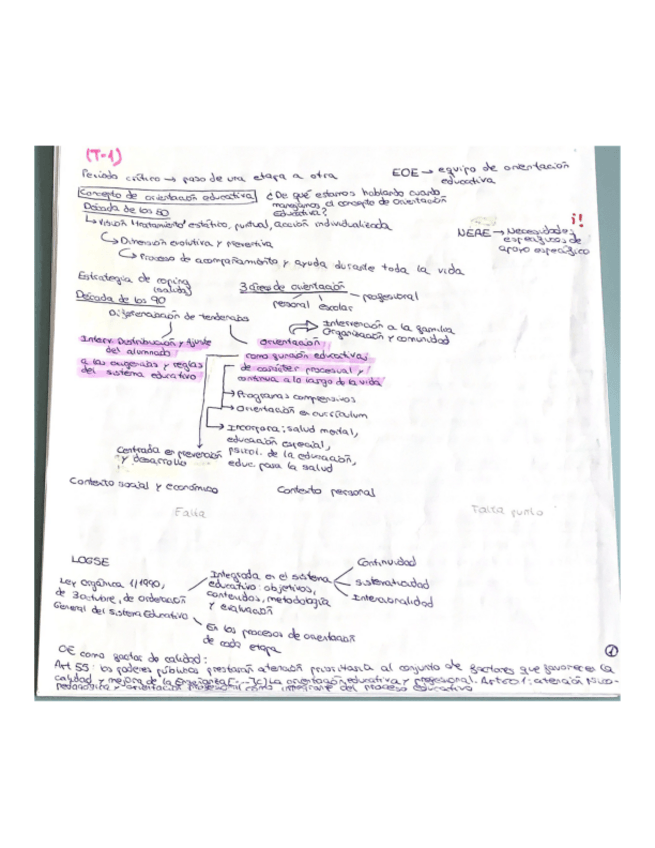 (T-1)
Periodo crítico → paso de una etapa a otra
EOE → equipo de orientación
educativa
Concepto de orientación educativa
¿De qué estamos hablando cuando
manejamos el concepto de orientación
educativa?
Década de los 80
↳ Visión tratamiento estático, puntual, acción individualizada
¡!
NEAE → Necesidades
específicas de
apoyo específico
↳ Dimensión evolutiva y preventiva
↳ Proceso de acompañamiento y ayuda durante toda la vida
Estrategia de coping
(salida)
3 áreas de orientación
personal escolar profesional
Década de los 90
Diferenciación de tendencias
Interv. Distribución y Ajuste
del alumnado
a las exigencias y reglas
del sistema educativo
Intervención a la familia
Organización y comunidad
Orientación
como función educativa
de carácter procesual y
continua a lo largo de la vida
→ Programas comprensivos
→ Orientación en currículum
→ Incorpora: salud mental,
educación especial,
psicol. de la educación,
educ. para la salud
Centrada en prevención
y desarrollo
Contexto social y económico
Contexto personal
Falta
Falta punto
LOGSE
Ley Orgánica 1/1990,
de 3 octubre, de ordenación
General del Sistema Educativo
Integrada en el sistema
educativo: objetivos,
contenidos, metodología
y evaluación
Continuidad
sistematicidad
Intencionalidad
En los procesos de orientación
de cada etapa
1
OE como factor de calidad:
Art 55: los poderes públicos prestarán atención prioritaria al conjunto de factores que favorecen la
calidad y mejora de la enseñanza [...] c) La orientación educativa y profesional. Artículo 1: atención psico-
pedagógica y orientación profesional como integrante del proceso educativo